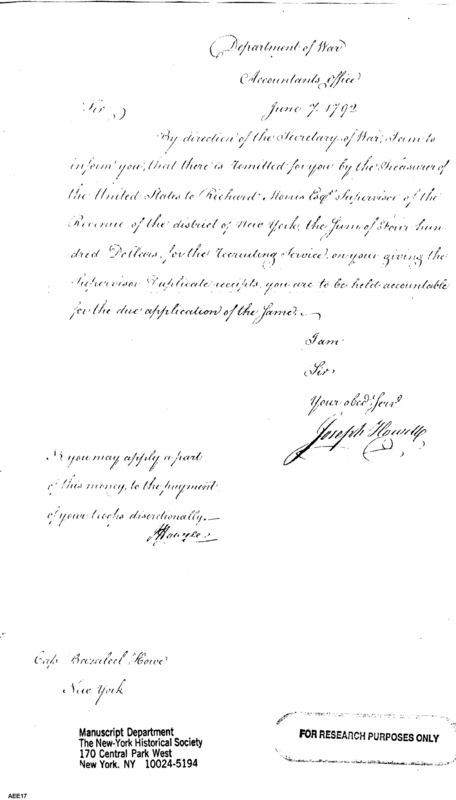 Department of War
Accountants Office
June 7. 1792
Sir
By direction of the Secretary of War, I am to
inform you, that there is remitted for you by the Treasurer of
the United States to Richard Morris Esqr. Supervisor of the
Revenue of the district of New York, the Sum of Four hun-
dred Dollars, for the Recruiting Service, on your giving the
Supervisor Duplicate receipts, you are to be held accountable
for the due application of the Same.
I am
Sir
Your obed. Serv.
Joseph Howell
you may apply a part
of this money, to the payment
of your troops discretionally.
JHowell
Cap Bezaleel Howe
New York
Manuscript Department
The New-York Historical Society
170 Central Park West
New York, NY 10024-5194
FOR RESEARCH PURPOSES ONLY
AEE17